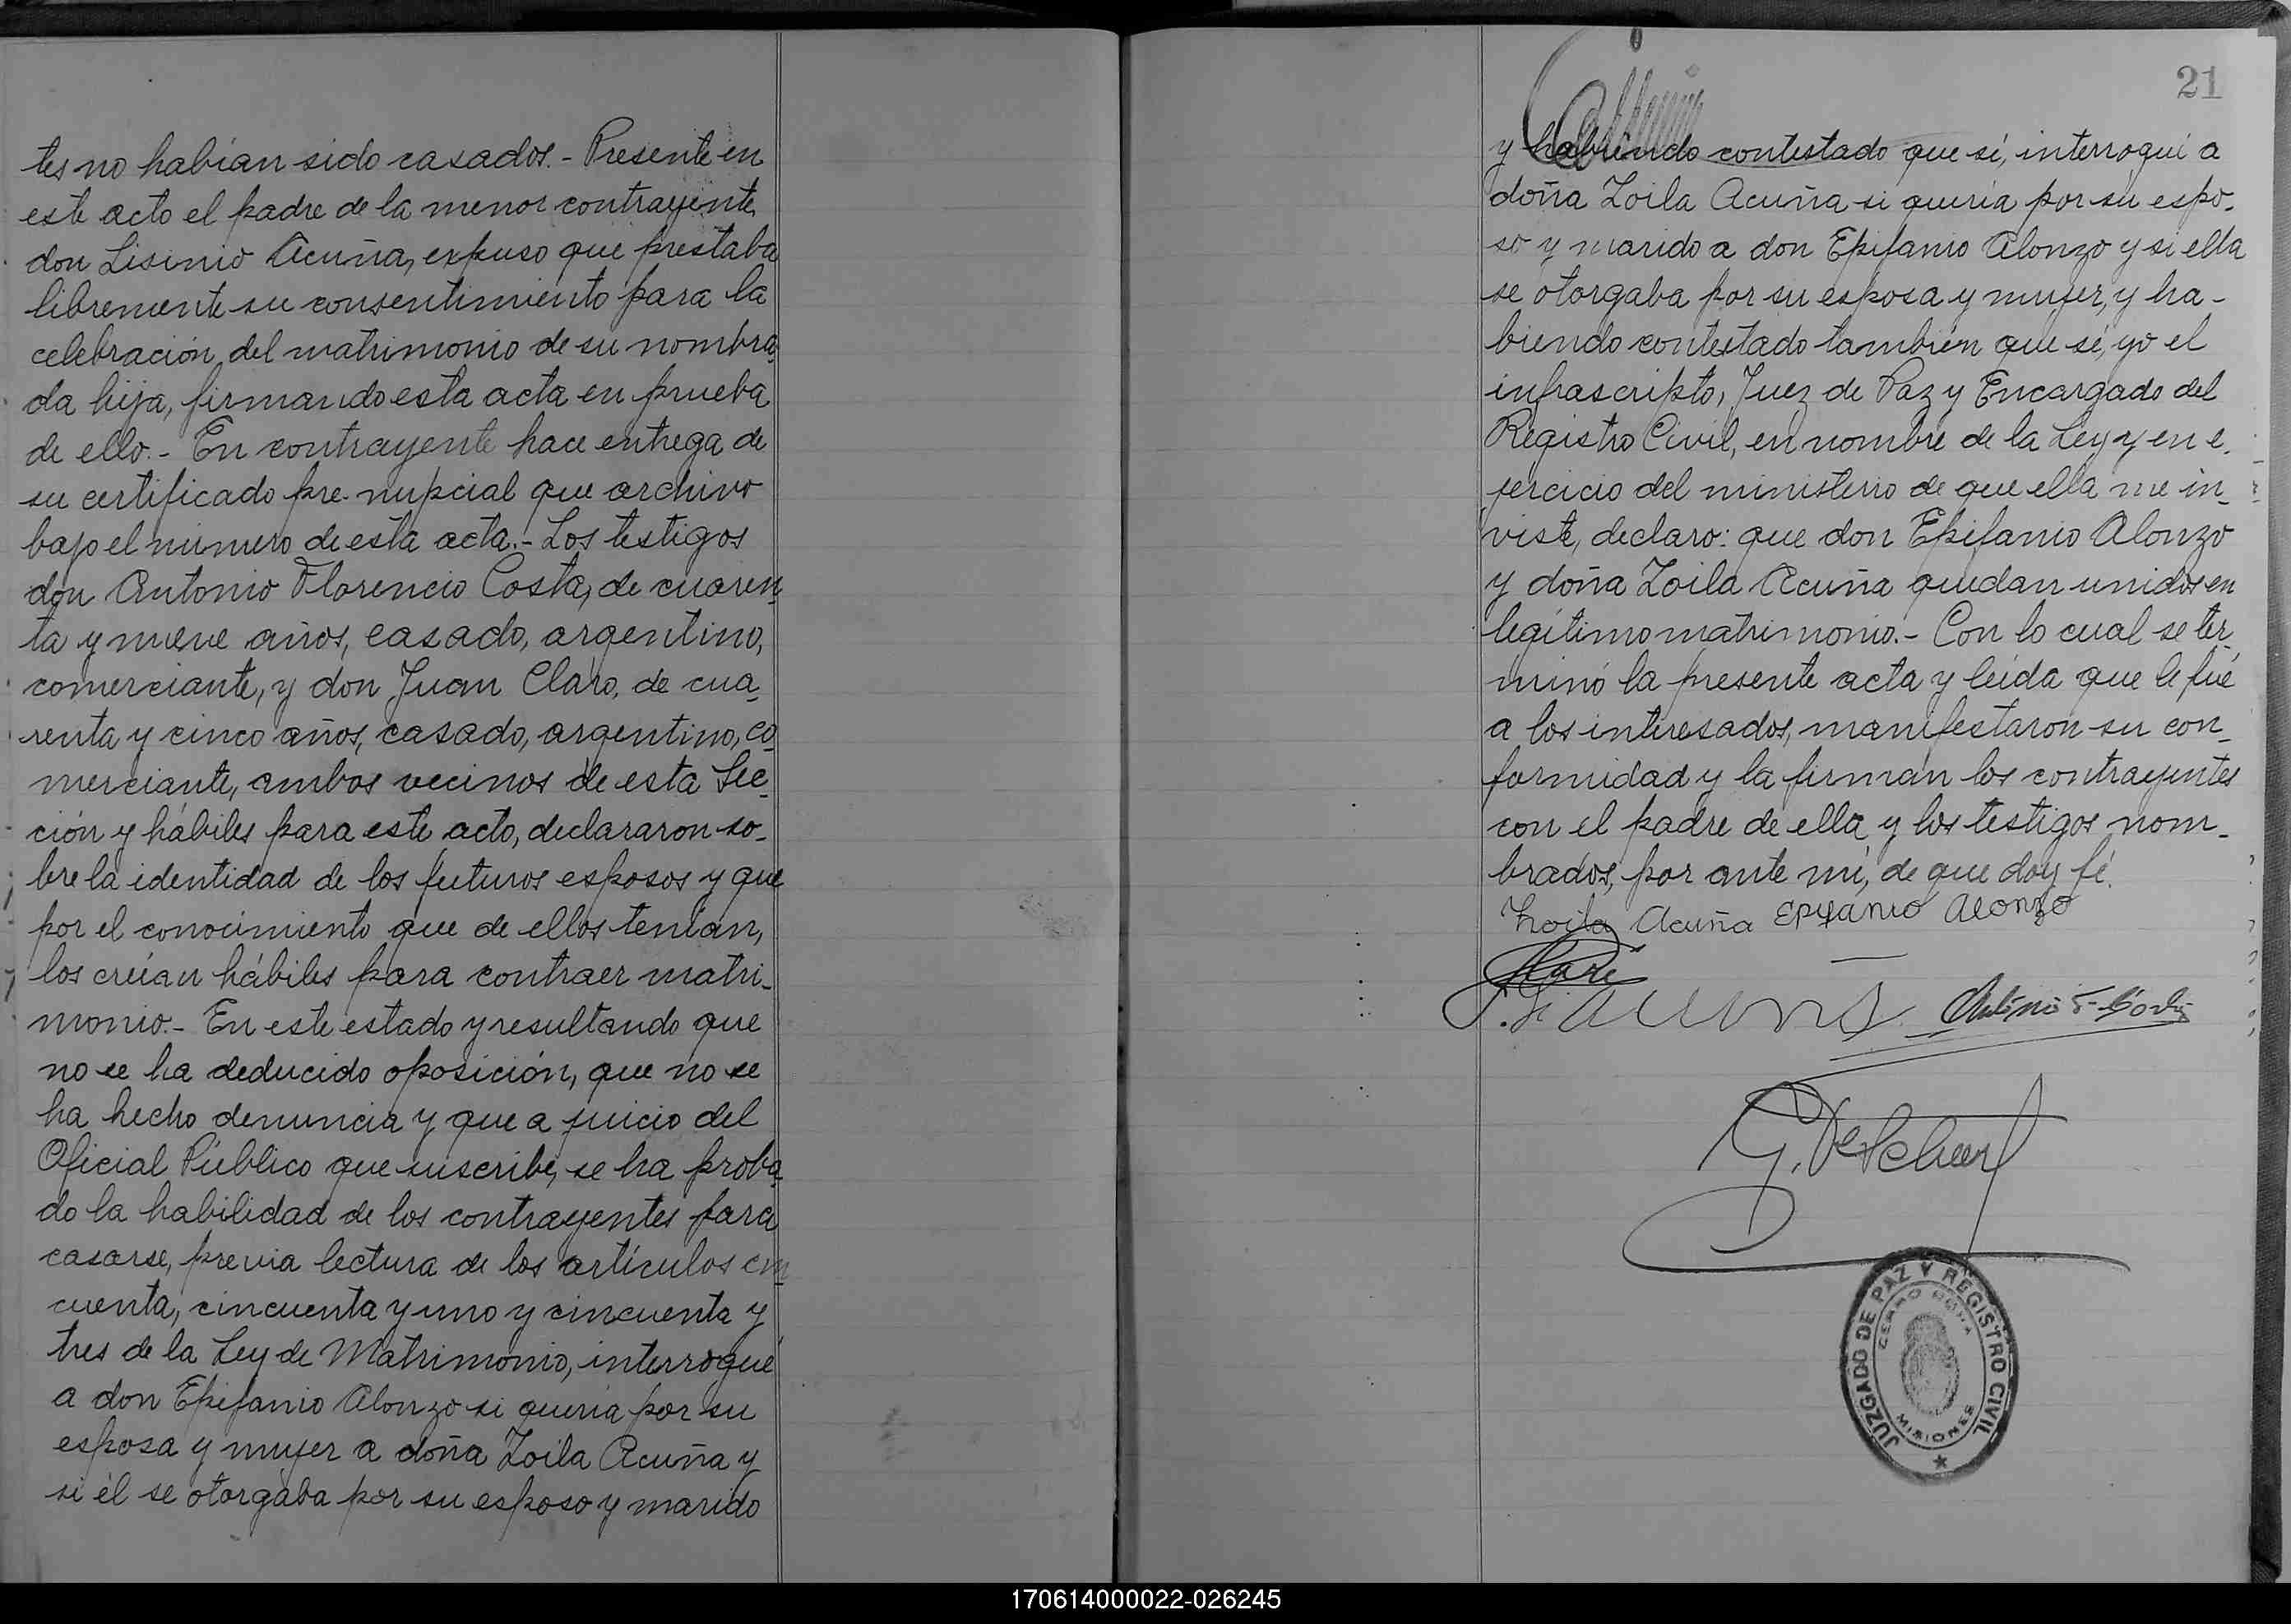 tes no habían sido casados.- Presente en
este acto el padre de la menor contrayente,
don Lisinio Acuña, expuso que prestaba
libremente su consentimiento para la
celebración del matrimonio de su nombra_
da hija, firmando esta acta en prueba
de ello.- En contrayente hace entrega de
su certificado pre-nupcial que archivo
bajo el número de esta acta.- Los testigos
don Antonio Florencio Costa, de cuaren_
ta y nueve años, casado, argentino,
comerciante, y don Juan Claro, de cua_
renta y cinco años, casado, argentino, co_
merciante, ambos vecinos de esta Sec_
ción y hábiles para este acto, declararon so_
bre la identidad de los futuros esposos y que
por el conocimiento que de ellos tenían,
los creían hábiles para contraer matri_
monio.- En este estado y resultando que
no se ha deducido oposición, que no se
ha hecho denuncia y que a juicio del
Oficial Público que suscribe, se ha proba_
do la habilidad de los contrayentes para
casarse, previa lectura de los artículos cin_
cuenta, cincuenta y uno y cincuenta y
tres de la Ley de Matrimonio, interrogué
a don Epifanio Alonzo si quería por su
esposa y mujer a doña Zoila Acuña y
si él se otorgaba por su esposo y marido
21
y habiendo contestado que sí, interrogué a
doña Zoila Acuña si quería por su espo_
so y marido a don Epifanio Alonzo y si ella
se otorgaba por su esposa y mujer, y ha_
biendo contestado también que sí, yo el
infrascripto, Juez de Paz y Encargado del
Registro Civil, en nombre de la Ley y en e_
jercicio del ministerio de que ella me in_
viste, declaro: que don Epifanio Alonzo
y doña Zoila Acuña quedan unidos en
legítimo matrimonio.- Con lo cual se ter_
minó la presente acta y leída que le fué
a los interesados, manifestaron su con_
formidad y la firman los contrayentes
con el padre de ella y los testigos nom_
brados, por ante mí, de que doy fé.
Zoila Acuña Epifanio Alonzo
Acuña
JUZGADO DE PAZ Y REGISTRO CIVIL
CERRO CORÁ
MISIONES
170614000022-026245